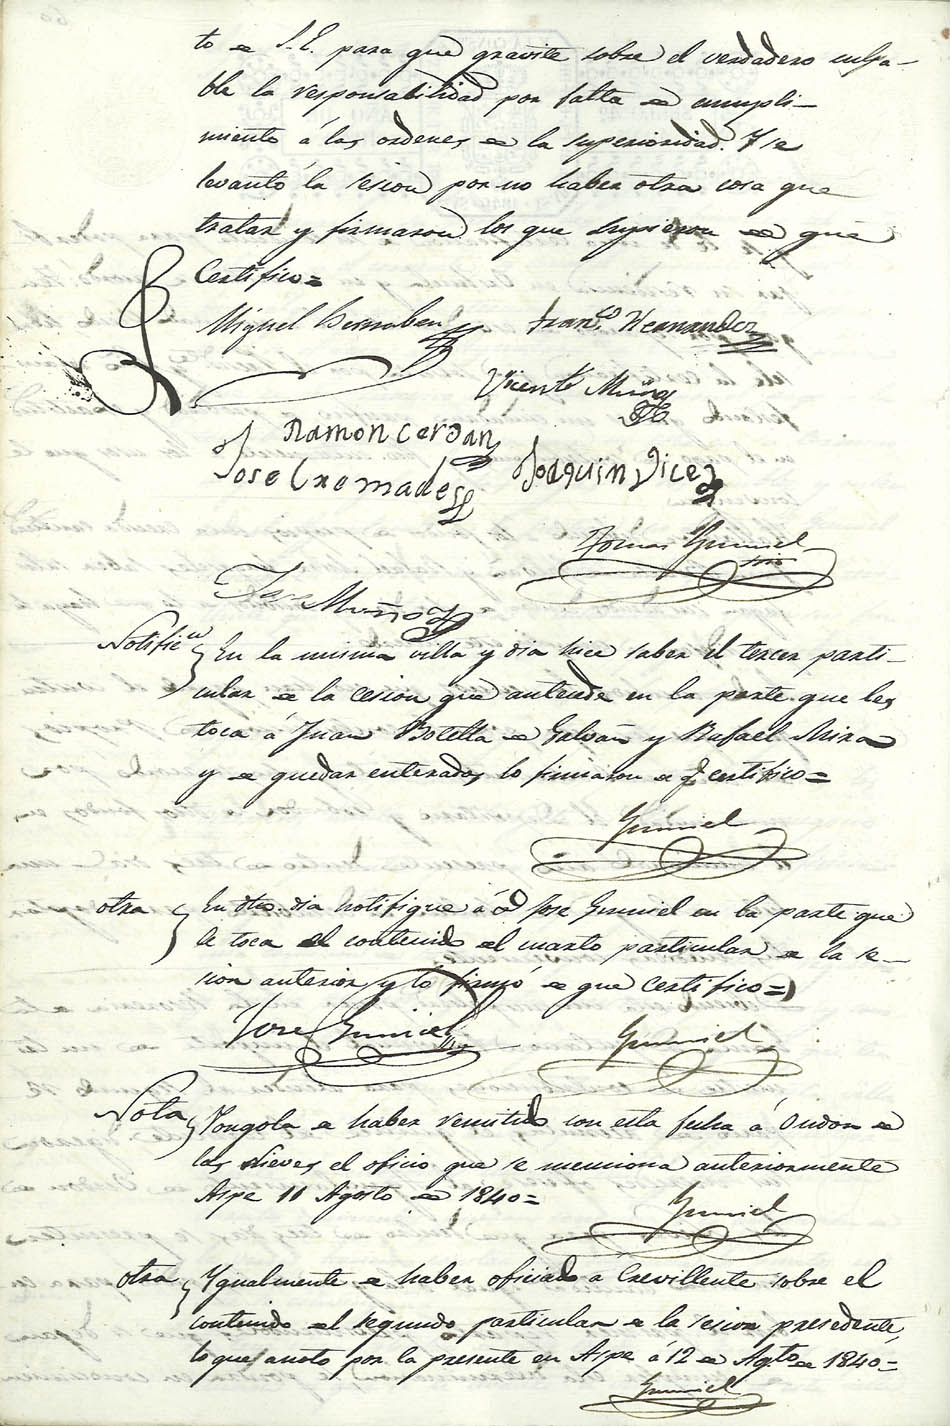 to de S.E. para que gravite sobre el verdadero culpa-
ble la responsabilidad por falta de cumpli-
miento á las ordenes de la superioridad. Y se
levantó la sesion por no haber otra cosa que
tratar y firmaron los que supieron de que
Certifico=
Miguel Bernabeu Fran.co Hernandez
Vicente Muñoz
Ramon Cerdan
Jose Cremades Joaquin Vicez
Tomas Gumiel
srio
Jose Muñoz
Notific.on En la misma villa y dia hice saber el tercer parti-
cular de la cesion que antecede en la parte que les
toca á Juan Botella de Galvañ y Rafael Mira
y de quedar enterados lo firmaron de q. certifico=
Gumiel
otra En dho. dia notifiqué á d. Jose Gumiel en la parte que
le toca el contenido del cuarto particular de la se-
sion anterior y lo firmó de que Certifico=
Jose Gumiel Gumiel
Nota Pongola de haber remitido con esta fecha á Ondon de
las Nieves el oficio que se menciona anteriormente
Aspe 11 Agosto de 1840=
Gumiel
otra Ygualmente de haber oficiado a Crevillente sobre el
contenido del segundo particular de la sesion presedente,
lo que anoto por la presente en Aspe á 12 de Agto de 1840=
Gumiel